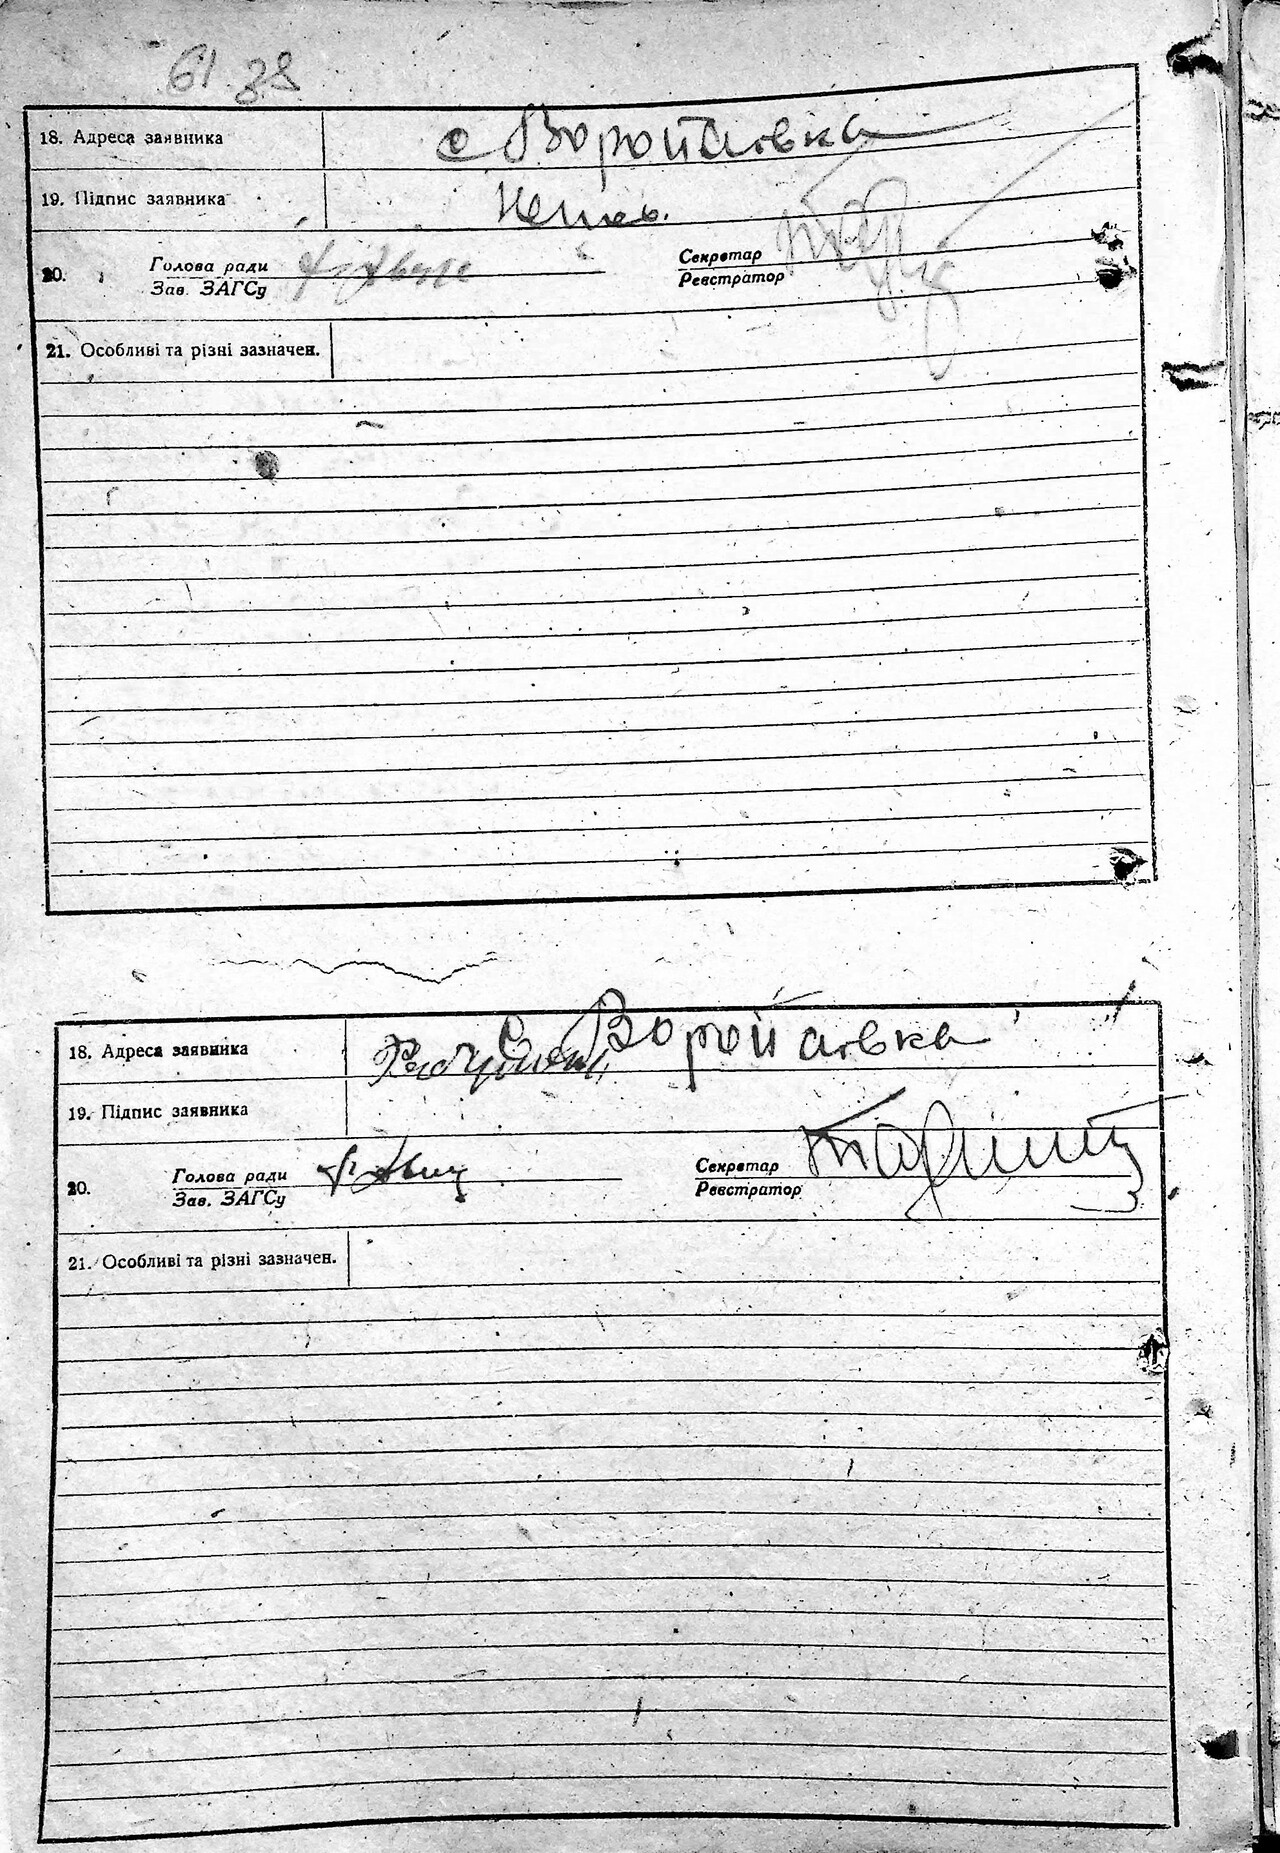 61 38
18. Адреса заявника с Воройтаєвка
19. Підпис заявника Непис.
20. Голова ради Секретар
Зав. ЗАГСу Реєстратор
21. Особливі та різні зазначен.
18. Адреса заявника с Воройтаєвка
19. Підпис заявника
20. Голова ради Секретар
Зав. ЗАГСу Реєстратор
21. Особливі та різні зазначен.